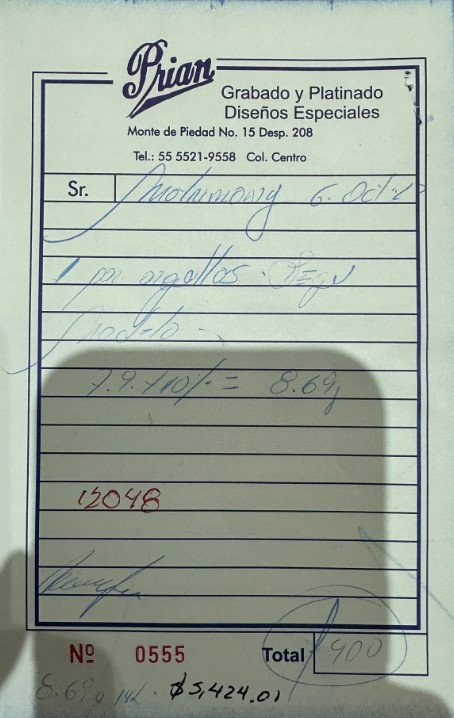 Prian
Grabado y Platinado
Diseños Especiales
Monte de Piedad No. 15 Desp. 208
Tel.: 55 5521-9558 Col. Centro
Sr. Matrimony 6. Oct.
1 par argollas.
Modelo
7.9 + 10% = 8.69g
12048
Nº 0555 Total $ 900
8.69g 14k. $5,424.01